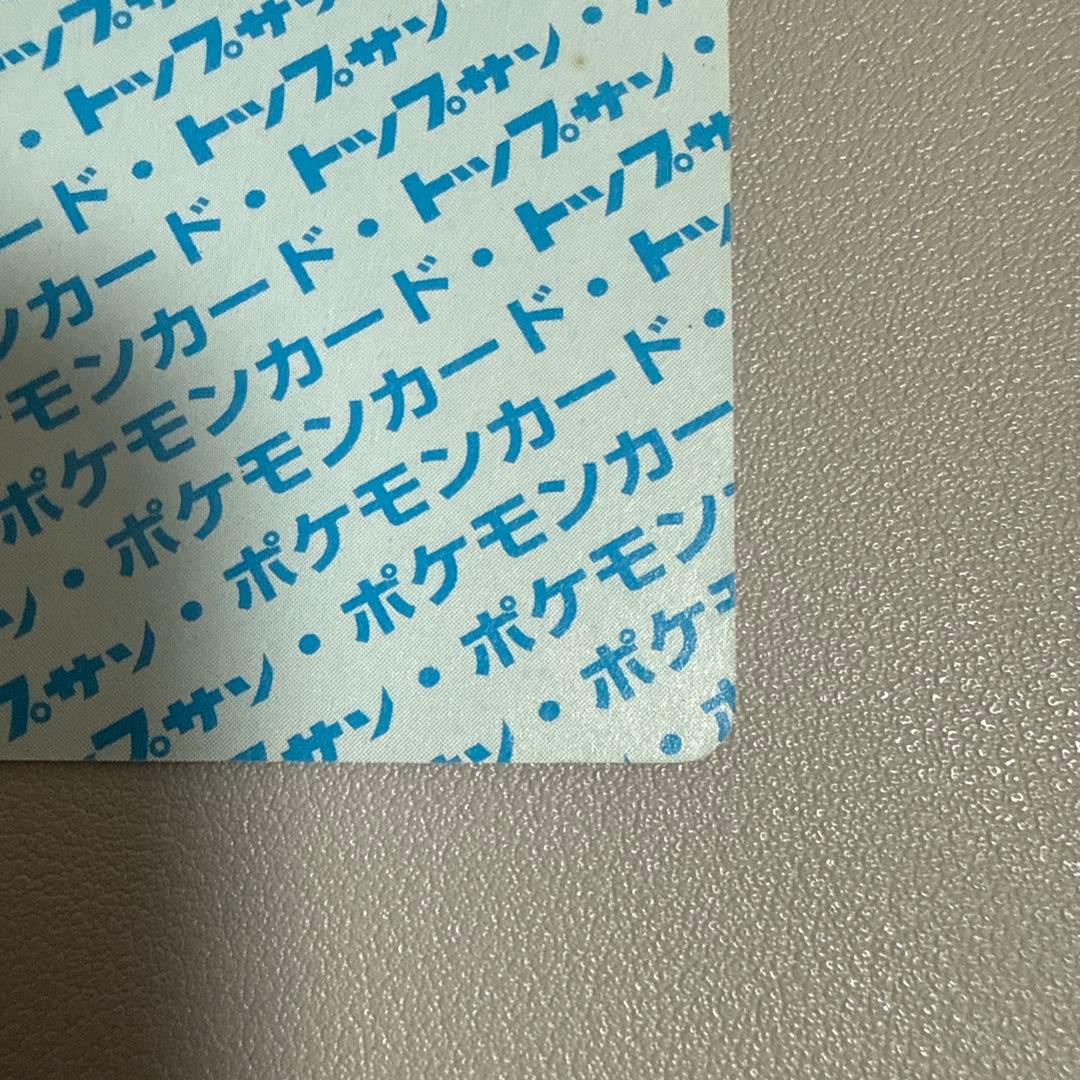 ップサ
・トップサ
ード・トップサン
ンカード・トップサン・
モンカード・トップサン・
ポケモンカード・トップサ
ン・ポケモンカード・トッ
プサン・ポケモンカード・
プサン・ポケモンカー
サン・ポケモン
ン・ポケ
・